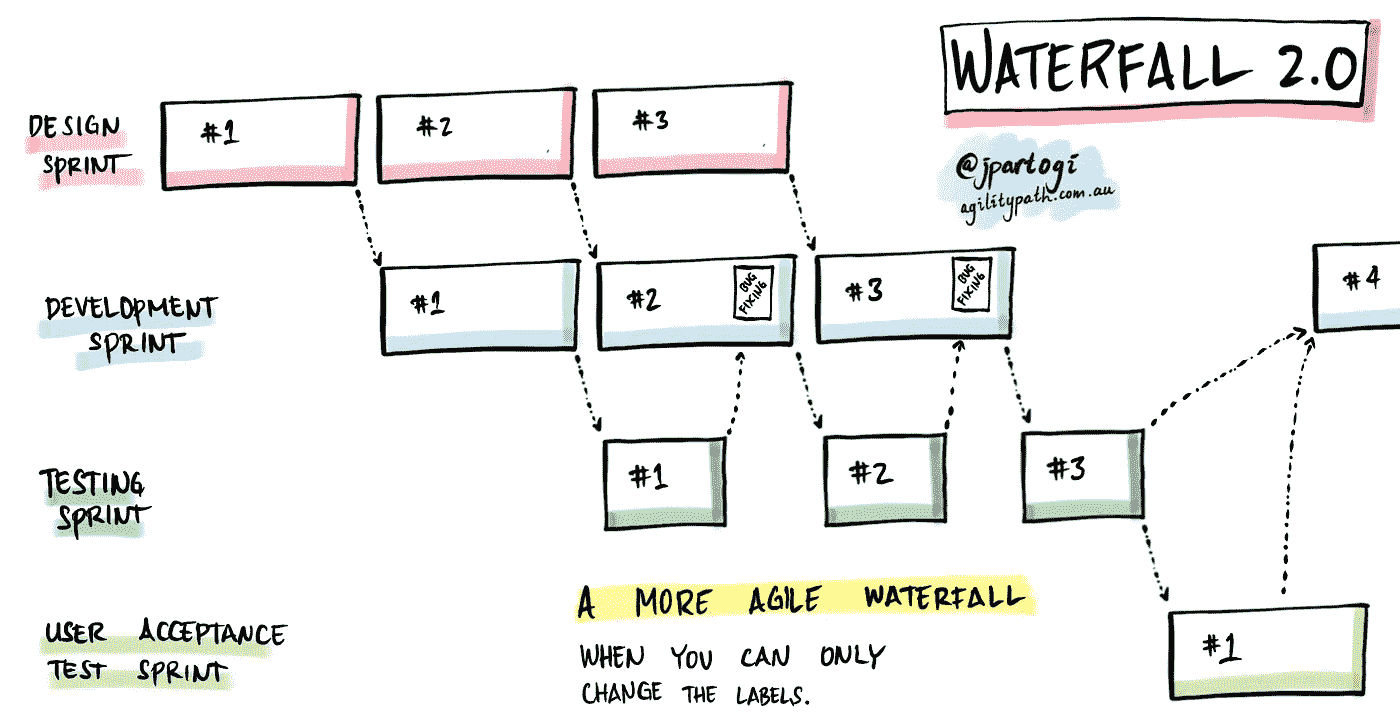 WATERFALL 2.0
@jpartogi
agilitypath.com.au
DESIGN
SPRINT
#1
#2
#3
DEVELOPMENT
SPRINT
#1
#2
BUG
FIXING
#3
BUG
FIXING
#4
TESTING
SPRINT
#1
#2
#3
USER ACCEPTANCE
TEST SPRINT
#1
A MORE AGILE WATERFALL
WHEN YOU CAN ONLY
CHANGE THE LABELS.